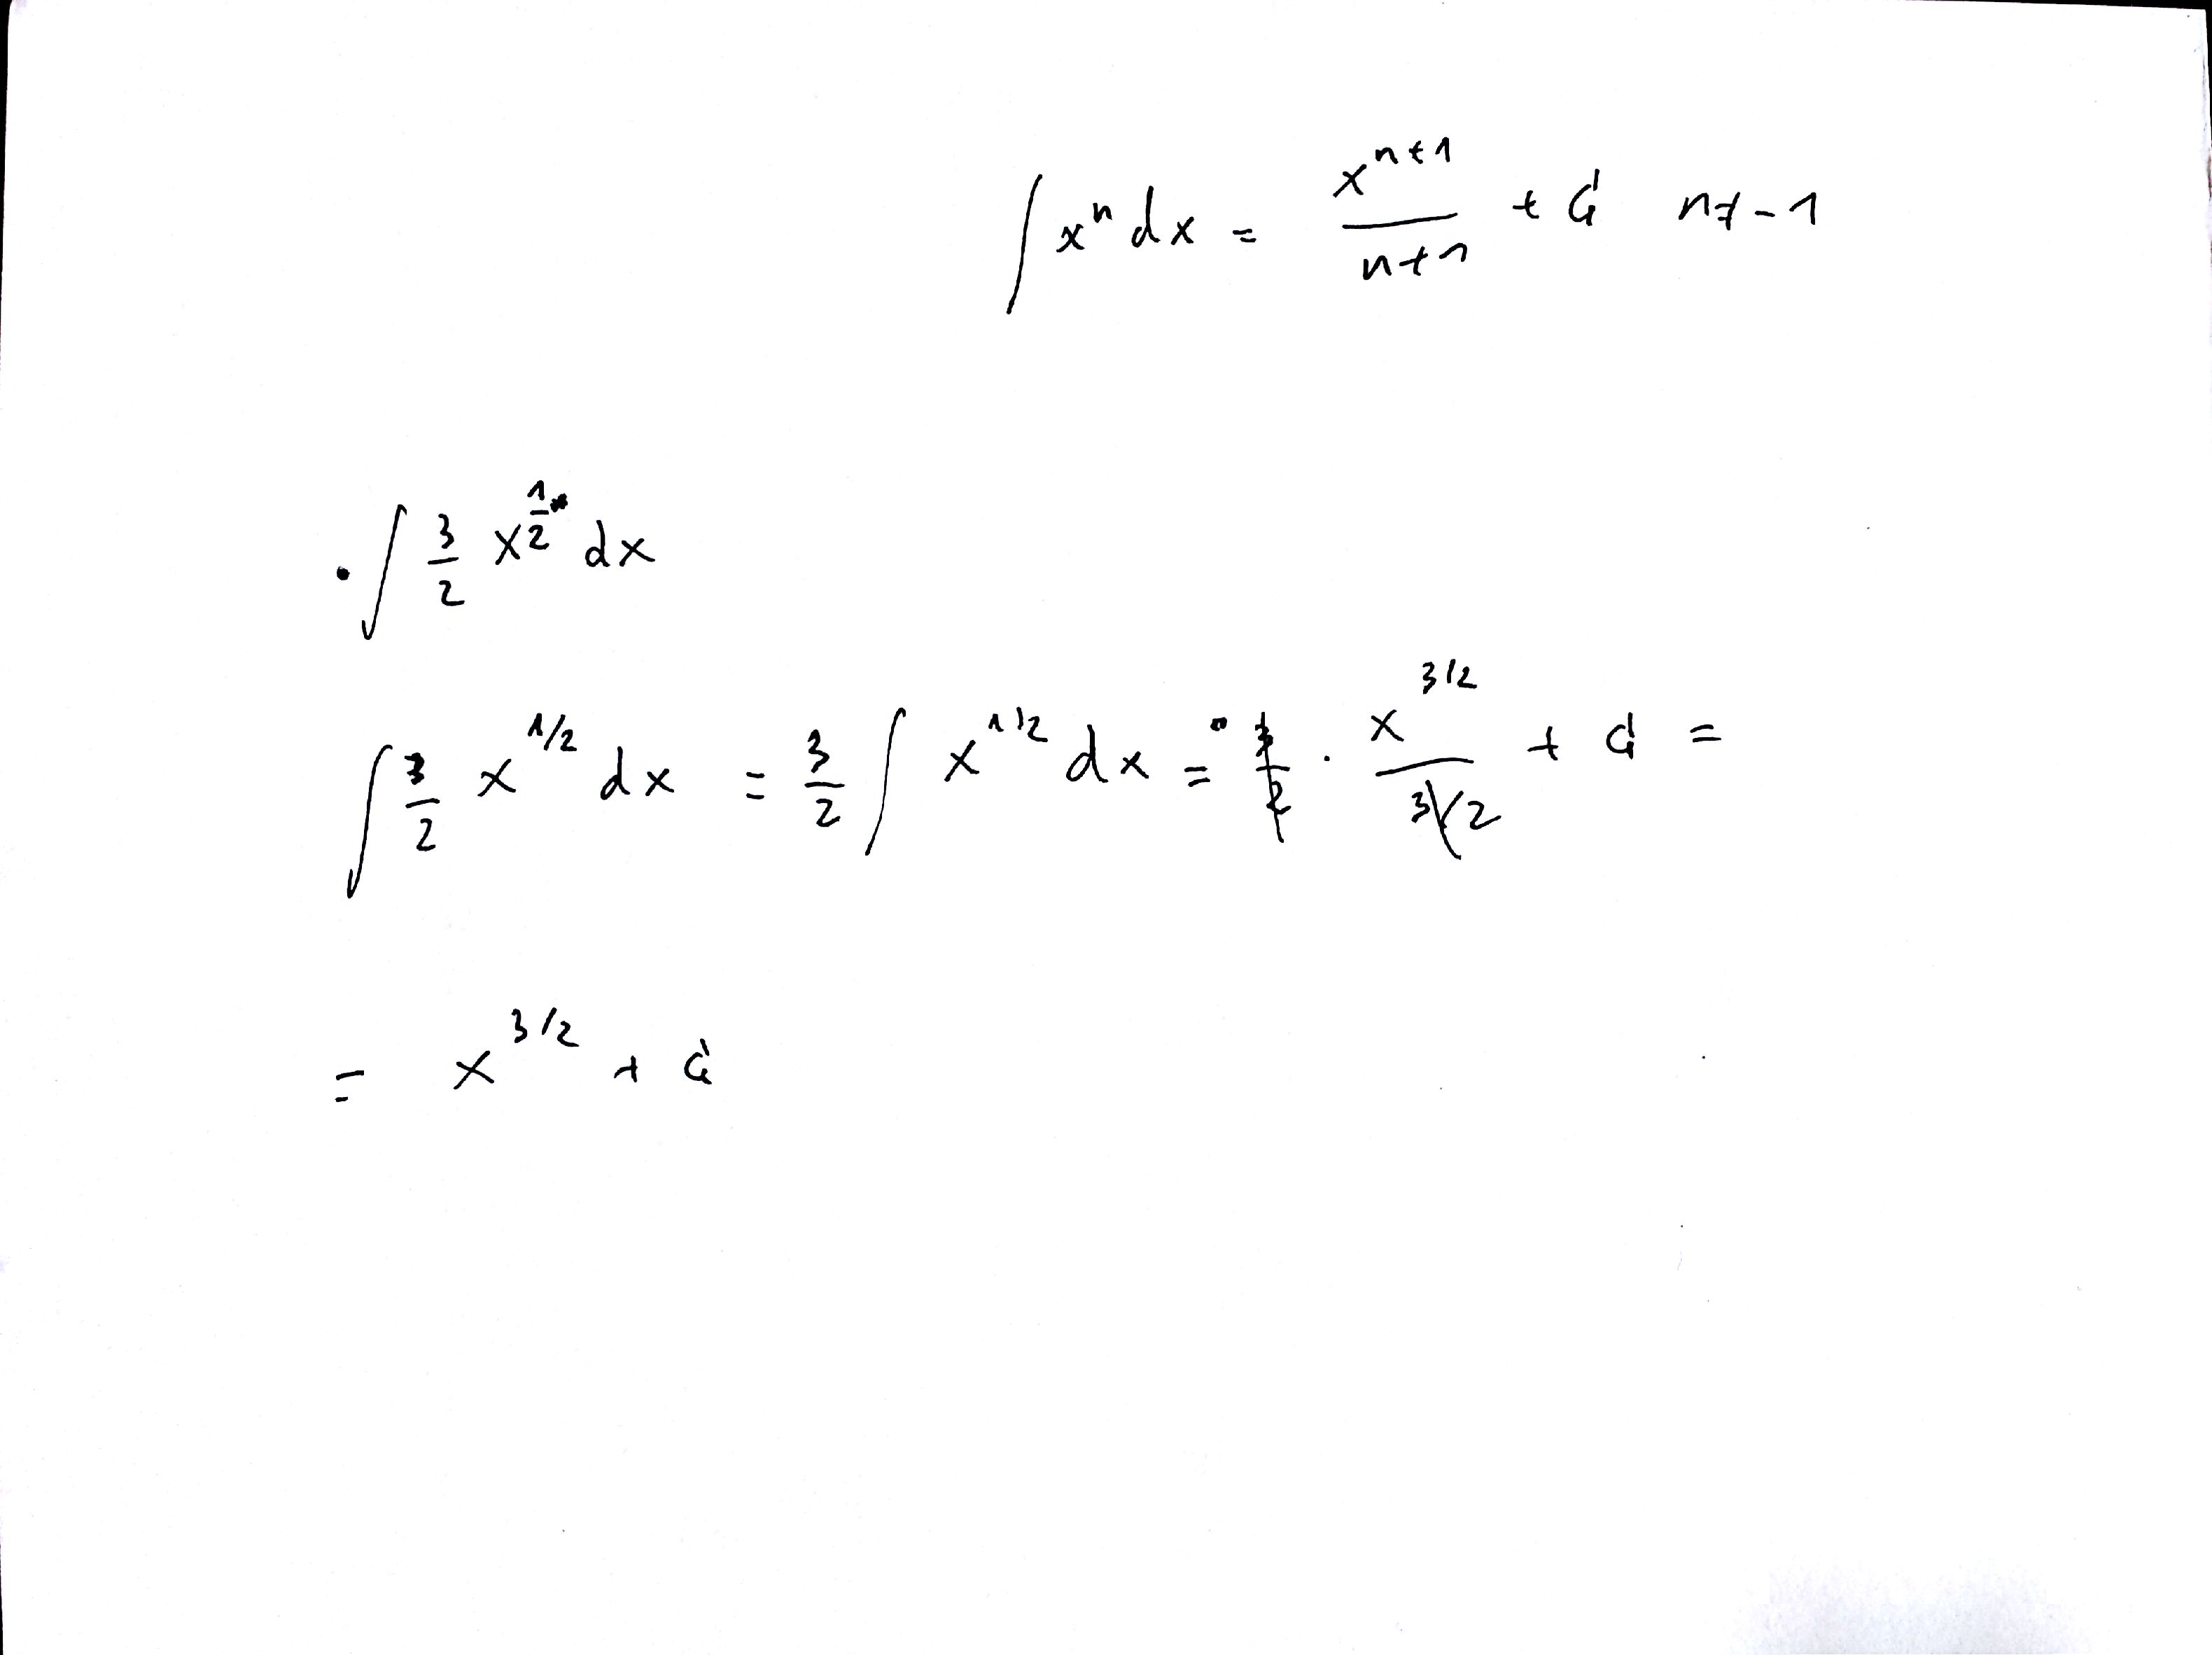 ∫ xⁿ dx = xⁿ⁺¹/(n+1) + C n ≠ -1
• ∫ 3/2 x^(1/2) dx
∫ 3/2 x^(1/2) dx = 3/2 ∫ x^(1/2) dx = 3/2 · x^(3/2)/(3/2) + C =
= x^(3/2) + C